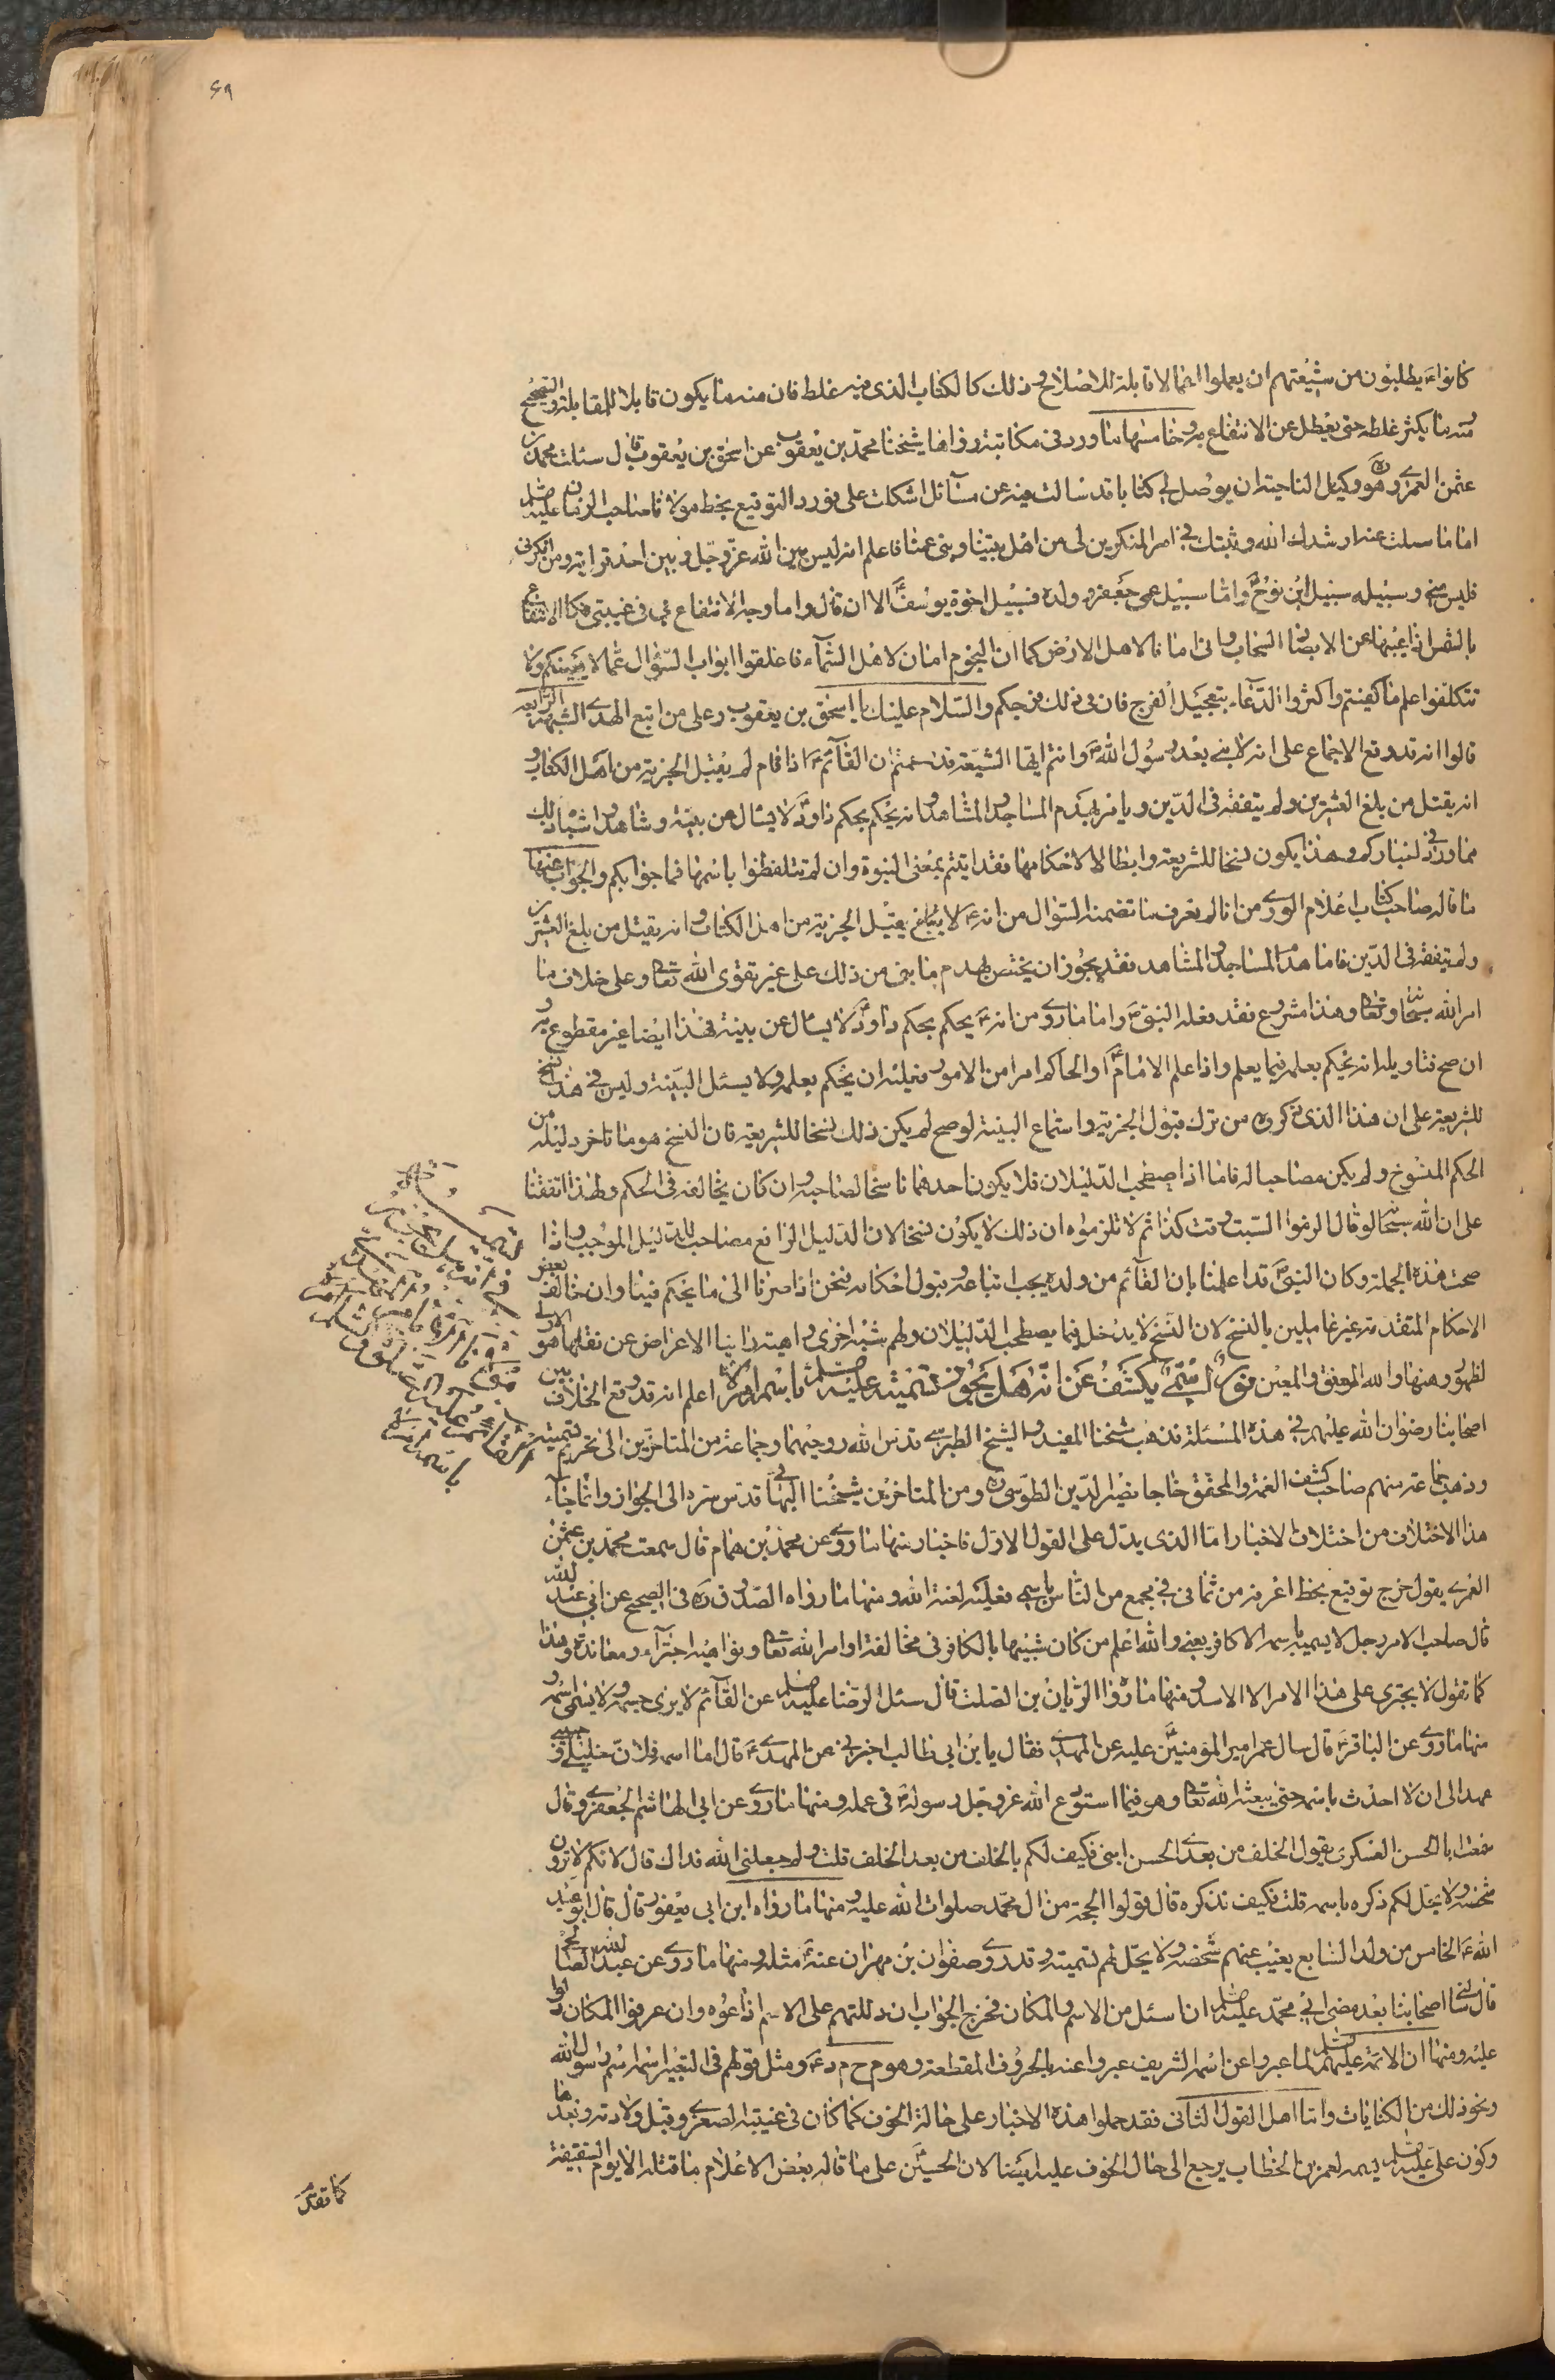 ٤٩
كانواء يطلبون من شيعتهم ان يعملوا اعمالا قابلة للاصلاح وذلك كالكتاب الذي فيه غلط فان منه ما يكون قابلا للمقابلة والتصحيح
ومنه ما يكثر غلطه حتى يعطل عن الانتفاع به وخامسها ما ورد في مكاتبة رواها شيخنا محمد بن يعقوب عن اسحق بن يعقوب قال سئلت محمد بن
عثمن العمري ره وهو وكيل الناحية ان يوصل لي كتابا قد سالت فيه عن مسآئل اشكلت على فورد التوقيع بخط مولانا صاحب الزمان عليه السلم
اما ما سالت عنه ارشدك الله وثبتك في امر المنكرين لي من اهل بيتنا وبني عمنا فاعلم انه ليس بين الله عز وجل وبين احد قرابة ومن انكرني
فليس مني وسبيله سبيل ابن نوح ع واما سبيل عمي جعفر وولده فسبيل اخوة يوسف ع الا ان قال واما وجه الانتفاع بي في غيبتي فكالانتفاع
بالشمس اذا غيبها عن الابصار السحاب واني امان لاهل الارض كما ان النجوم امان لاهل السمآء فاغلقوا ابواب السؤال عما لا يعينكم ولا
تتكلفوا علم ما كفيتم واكثروا الدعآء بتعجيل الفرج فان في ذلك فرجكم والسلام عليك يا اسحق بن يعقوب وعلى من اتبع الهدى الشبهة الرابعة
قالوا انه قد وقع الاجماع على انه لا نبي بعد رسول الله ص وانتم ايها الشيعة قد زعمتم ان القآئم ع اذا قام لم يقبل الجزية من اهل الكتاب و
انه يقتل من بلغ العشرين ولم يتفقه في الدين ويامر بهدم المساجد والمشاهد وانه يحكم بحكم داود ع لا يسال عن بينة وشاهد واشباه ذلك
مما ورد في اخباركم وهذا يكون نسخا للشريعة وابطالا لاحكامها فقد اثبتم معنى النبوة وان لم تتلفظوا باسمها فما جوابكم والجواب عنها
ما قاله صاحب كتاب اعلام الورى من انا لم نعرف ما تضمنه السؤال من انه ع لا يقبل الجزية من اهل الكتاب وانه يقتل من بلغ العشرين
ولم يتفقه في الدين فاما هدم المساجد والمشاهد فقد يجوز ان يختص بهدم ما بني من ذلك على غير تقوى الله تعالى وعلى خلاف ما
امر الله سبحانه وتعالى وهذا مشروع فقد فعله النبي ص واما ما روي من انه ع يحكم بحكم داود ع لا يسال عن بينة فهذا ايضا غير مقطوع به و
ان صح فتاويله انه يحكم بعلمه فيما يعلم واذا علم الامام ع او الحاكم امرا من الامور فعليه ان يحكم بعلمه ولا يسئل البينة وليس في هذا نسخ
للشريعة على ان هذا الذي ذكروه من ترك قبول الجزية واستماع البينة لو صح لم يكن ذلك نسخا للشريعة فان النسخ هو ما تاخر دليله من
الحكم المنسوخ ولم يكن مصاحبا له فاما اذا اصطحب الدليلان فلا يكون احدهما ناسخا لصاحبه وان كان يخالفه في الحكم ولهذا اتفقنا
على ان الله سبحانه لو قال الزموا السبت وقت كذا ثم لا تلزموه ان ذلك لا يكون نسخا لان الدليل الرافع مصاحب للدليل الموجب واذا
صحت هذه الجملة وكان النبي ص قد اعلمنا بان القآئم من ولده يجب اتباعه وقبول احكامه فنحن اذا صرنا الى ما يحكم فينا وان خالف بعض
الاحكام المتقدمة غير عاملين بالنسخ لان النسخ لا يدخل فيما يصطحب الدليلان ولهم شبه اخرى واهية راينا الاعراض عن نقلها هو الاولى
لظهور وهنها والله الموفق والمعين نور سمي يكشف عن انه هل يجوز تسميته عليه السلم باسمه او لا اعلم انه قد وقع الخلاف بين
اصحابنا رضوان الله عليهم في هذه المسئلة فذهب شيخنا المفيد والشيخ الطبرسي قدس الله روحيهما وجماعة من المتاخرين الى تحريم تسميته
وذهب جماعة منهم صاحب كشف الغمة والمحقق خاجا نصير الدين الطوسي ره ومن المتاخرين شيخنا البهائي قدس سره الى الجواز وانما جآء
هذا الاختلاف من اختلاف الاخبار اما الذي يدل على القول الاول فاخبار منها ما روي عن محمد بن همام قال سمعت محمد بن عثمن
العمري يقول خرج توقيع بخط اعرفه من سماني في مجمع من الناس باسمي فعليه لعنة الله ومنها ما رواه الصدوق ره في الصحيح عن ابي عبد الله
قال صاحب الامر رجل لا يسميه باسمه الا كافر يعني والله اعلم من كان شبيها بالكافر في مخالفة اوامر الله تعالى ونواهيه اجترآء ومعاندة وهذا
كما تقول لا يجترى على هذا الامر الا الاسد ومنها ما رواه الريان بن الصلت قال سئل الرضا عليه السلم عن القآئم لا يرى جسمه ولا يسمى اسمه و
منها ما روي عن الباقر ع قال سال عمر امير المؤمنين ع عليه عن المهدي فقال يا بن ابي طالب اخبرني عن المهدي ع قال اما اسمه فلا ان خليلي وحبيبي
عهد الى ان لا احدث باسمه حتى يبعثه الله تعالى وهو فيما استودع الله عز وجل رسوله ص في علمه ومنها ما روي عن ابي الهاشم الجعفري قال
سمعت ابا الحسن العسكري يقول الخلف من بعدي الحسن ابني فكيف لكم بالخلف من بعد الخلف قلت ولم جعلني الله فداك قال لانكم لا ترون
شخصه ولا يحل لكم ذكره باسمه قلت فكيف نذكره قال قولوا الحجة من ال محمد صلوات الله عليه ومنها ما رواه ابن ابي يعفور قال قال ابو عبد
الله ع الخامس من ولد السابع يغيب عنهم شخصه ولا يحل لهم تسميته وقد روي صفوان بن مهران عنه ع مثله ومنها ما روي عن عبد الله الصالحي
قال سالني اصحابنا بعد مضي ابي محمد عليه السلم ان اسئل من الاسم والمكان فخرج الجواب ان دللتهم على الاسم اذاعوه وان عرفوا المكان دلوا
عليه ومنها ان الائمة عليهم السلم لما عبروا عن اسمه الشريف عبروا عنه بالحروف المقطعة وهو م ح م د ع ومثل قولهم في التعبير اسمه اسم رسول الله
ونحو ذلك من الكنايات واما اهل القول الثاني فقد حملوا هذه الاخبار على حالة الخوف كما كان في غيبته الصغرى وقبل ولادته وبعدها
وكون علي عليه السلم لم يسمه لعمر بن الخطاب يرجع الى حال الخوف عليه ايضا لان الحسين ع على ما قاله بعض الاعلام ما قتله الا يوم السقيفة
كما تقدم